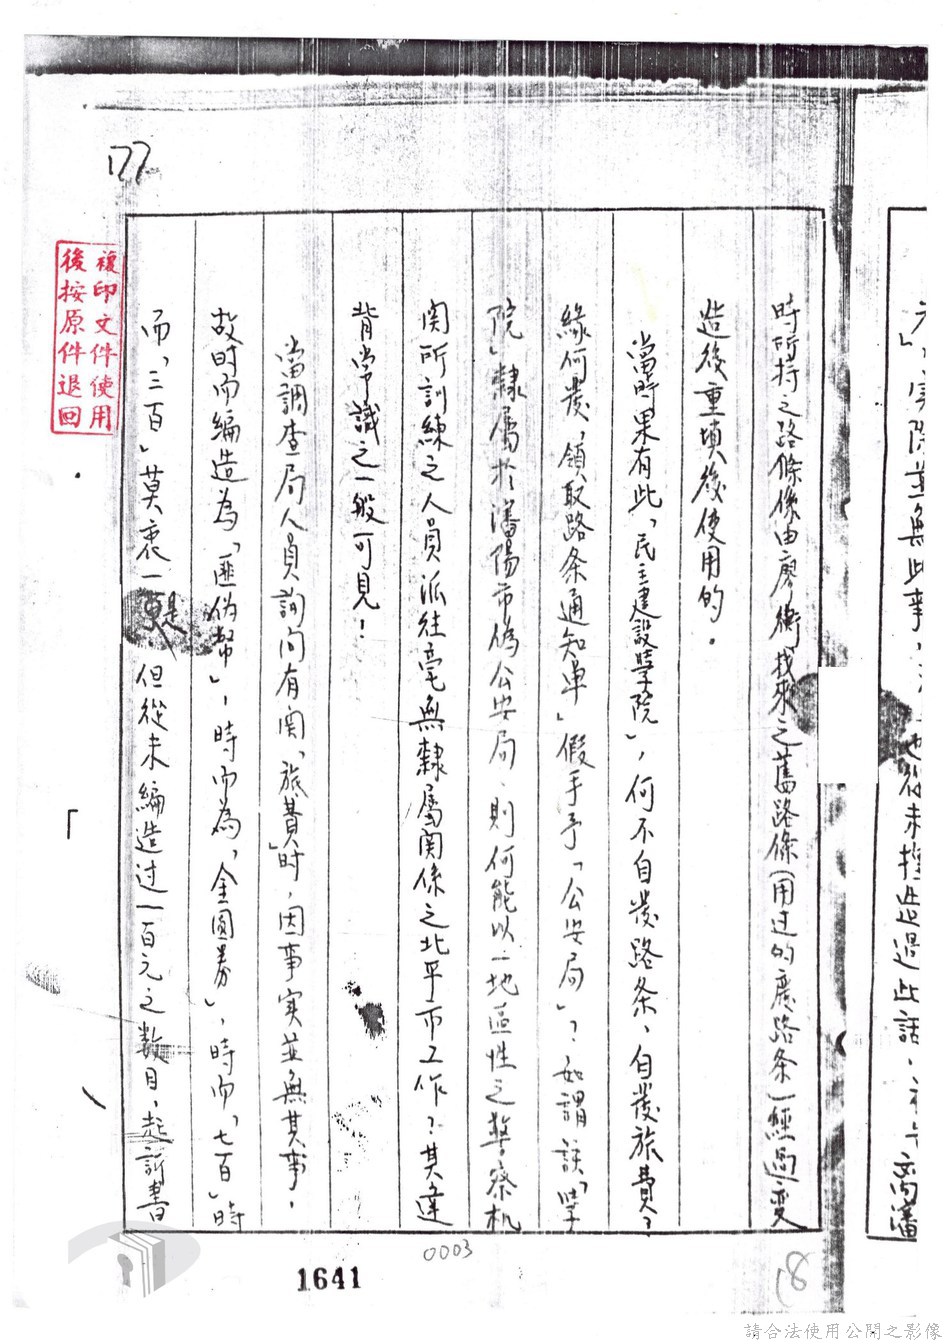 177
複印文件使用
後按原件退回
也從未捏造過此話，
离瀋
時所持之路條係由廖衡找來之舊路條(用过的废路条)經過变
造後重填後使用的。
當時果有此「民主建設學院」，何不自發路条、自發旅費？
緣何發「領取路条通知单」假手予「公安局」？如謂該「學
院」隸屬於瀋陽市偽公安局、則何能以一地區性之警察机
関所訓練之人員派往毫無隸屬関係之北平市工作？其違
背常識之一般可見！
當調查局人員詢问有関「旅費」时，因事实並無其事，
故时而編造為「匪伪幣」，時而為「金圓券」，時而「七百」時
而「三百」莫衷一是，但從未編造过一百元之数目，起訴書
0003
1641
18
請合法使用公開之影像